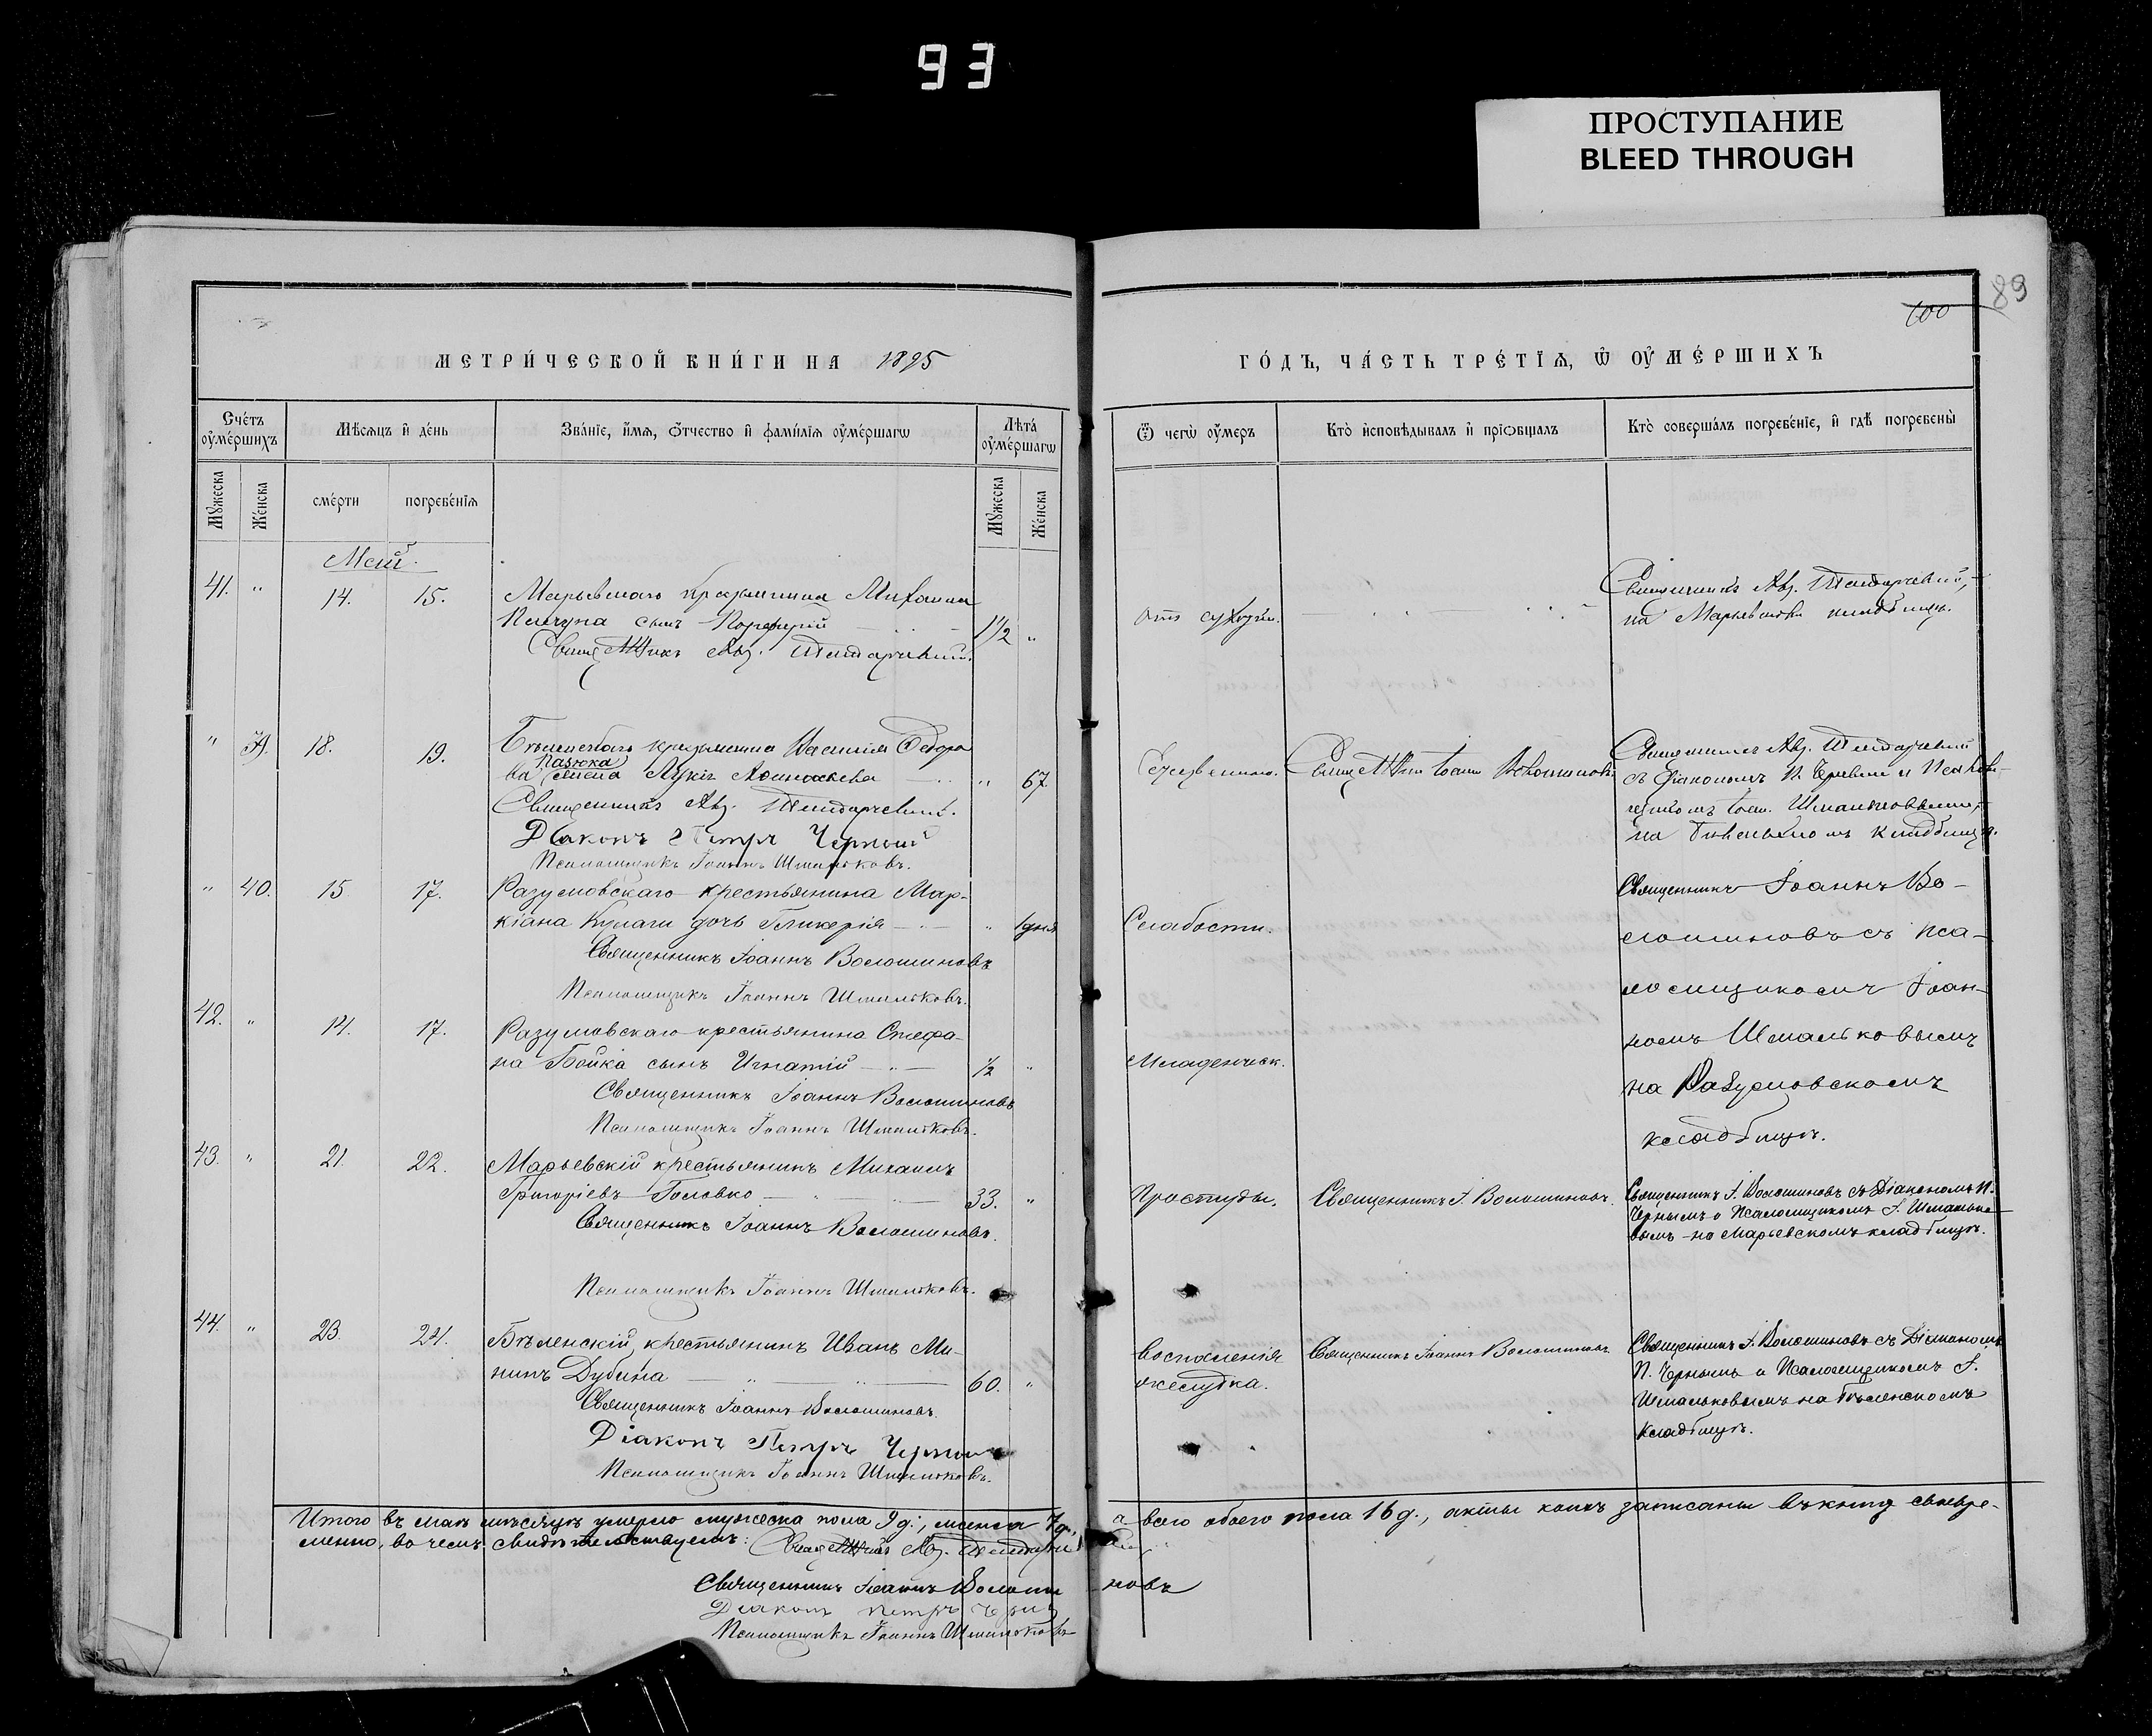 93
ПРОСТУПАНИЕ
BLEED THROUGH
89
100
МЕТРИ́ЧЕСКОЙ КНИ́ГИ НА 1895
ГО́ДЪ, ЧА́СТЬ ТРЕ́ТІѦ, Ѡ҆ ОУ҆МЕ́РШИХЪ
Сче́тъ оу҆ме́ршихъ
Мѣсяцъ и҆ де́нь
Зва́нїе, и҆́мѧ, ѻ҆́тчество и҆ фами́лїѧ оу҆ме́ршагѡ
Лѣта́ оу҆ме́ршагѡ
Ѿ чегѡ̀ оу҆́меръ
Кто̀ и҆сповѣ́дывалъ и҆ прїѡбща́лъ
Кто̀ соверша́лъ погребе́нїе, и҆ гдѣ̀ погребены̀
Мꙋжеска
Же́нска
сме́рти
погребе́нїѧ
Мꙋжеска
Же́нска
Май.
41. " 14. 15. Марьевскаго крестьянина Михаила
сынъ Порфирій 1½ "
Священникъ Авз.
отъ сухоты.
Священникъ Авз.
на Марьевском кладбищѣ.
" 39. 18. 19. Бѣленскаго крестьянина Василія Федоро
Пазюка
ва Лукія " 67.
Священникъ Авз.
Діаконъ Петръ Черный
Псаломщикъ Іоаннъ Шмальковъ.
Священникъ Іоаннъ Волошиновъ
Священникъ Авз.
съ діакономъ П. Чернымъ и Псалом
щикомъ Іоан. Шмальковымъ,
на Бѣленскомъ кладбищѣ.
" 40. 15 17. Разумовскаго крестьянина Мар-
кіана Кулаги дочь Гликерія " 1 дня
Священникъ Іоаннъ Волошиновъ
Псаломщикъ Іоаннъ Шмальковъ.
Слабости.
Священникъ Іоаннъ Во-
лошиновъ съ Пса-
ломщикомъ Іоан-
номъ Шмальковымъ
на Разумовскомъ
кладбищѣ.
42. " 14. 17. Разумовскаго крестьянина Стефа-
на Бойка сынъ Игнатій ½ "
Священникъ Іоаннъ Волошиновъ
Псаломщикъ Іоаннъ Шмальковъ.
Младенческ.
43. " 21. 22. Марьевскій крестьянинъ Михаилъ
Григоріевъ Головко 33. "
Священникъ Іоаннъ Волошиновъ.
Псаломщикъ Іоаннъ Шмальковъ.
Простуды.
Священникъ І. Волошиновъ.
Священникъ І. Волошиновъ съ Діакономъ П.
Чернымъ и Псаломщикомъ І. Шмалько-
вымъ на Марьевскомъ кладбищѣ.
44. " 23. 24. Бѣленскій крестьянинъ Иванъ Ми-
нинъ Дубина 60. "
Священникъ Іоаннъ Волошиновъ.
Діаконъ Петръ Черный
Псаломщикъ Іоаннъ Шмальковъ.
Воспаленія
желудка.
Священникъ Іоаннъ Волошиновъ.
Священникъ І. Волошиновъ съ Діакономъ
П. Чернымъ и Псаломщикомъ І.
Шмальковымъ на Бѣленскомъ
кладбищѣ.
Итого въ маѣ мѣсяцѣ умерло мужеска пола 9 д., женска 7 д., а всего обоего пола 16 д., акты коихъ записаны въ книгу своевре-
менно, въ чемъ свидѣтельствуемъ: Священникъ Авз.
Священникъ Іоаннъ Волошиновъ
Діаконъ Петръ Черный
Псаломщикъ Іоаннъ Шмальковъ